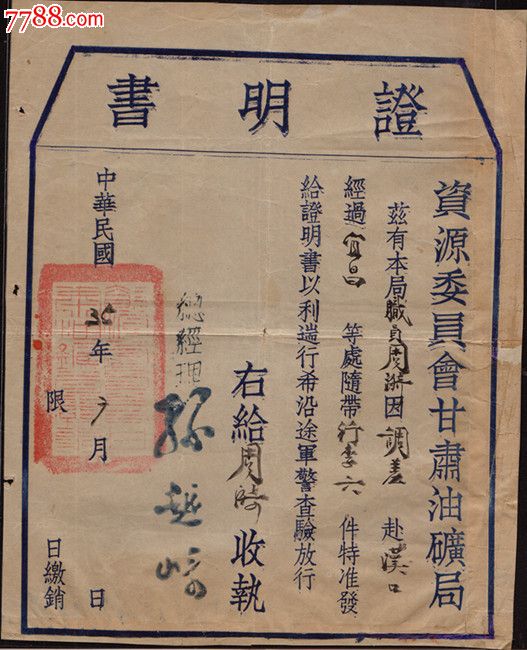 7788.com
證明書
資源委員會甘肅油礦局
茲有本局職員周 因調差赴漢口
經過宜昌等處隨帶行李六件特准發
給證明書以利遄行希沿途軍警查驗放行
右給周 收執
總經理 孫越崎
中華民國35年 月 日
限 日繳銷